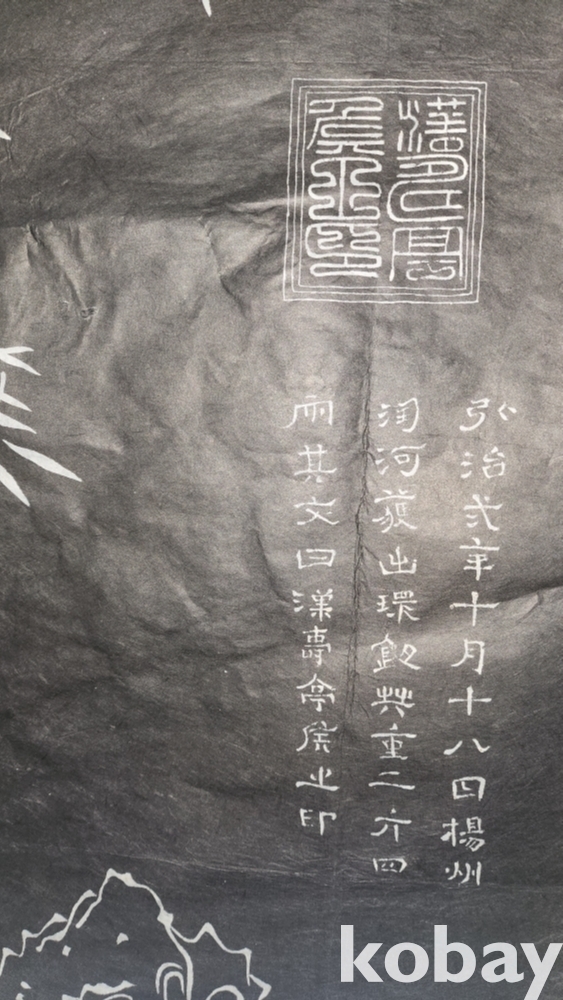 漢壽亭
侯之印
弘治弍年十月十八四楊州
淘河獲出環鈕共重二斤四
兩其文曰漢壽亭侯之印
kobay